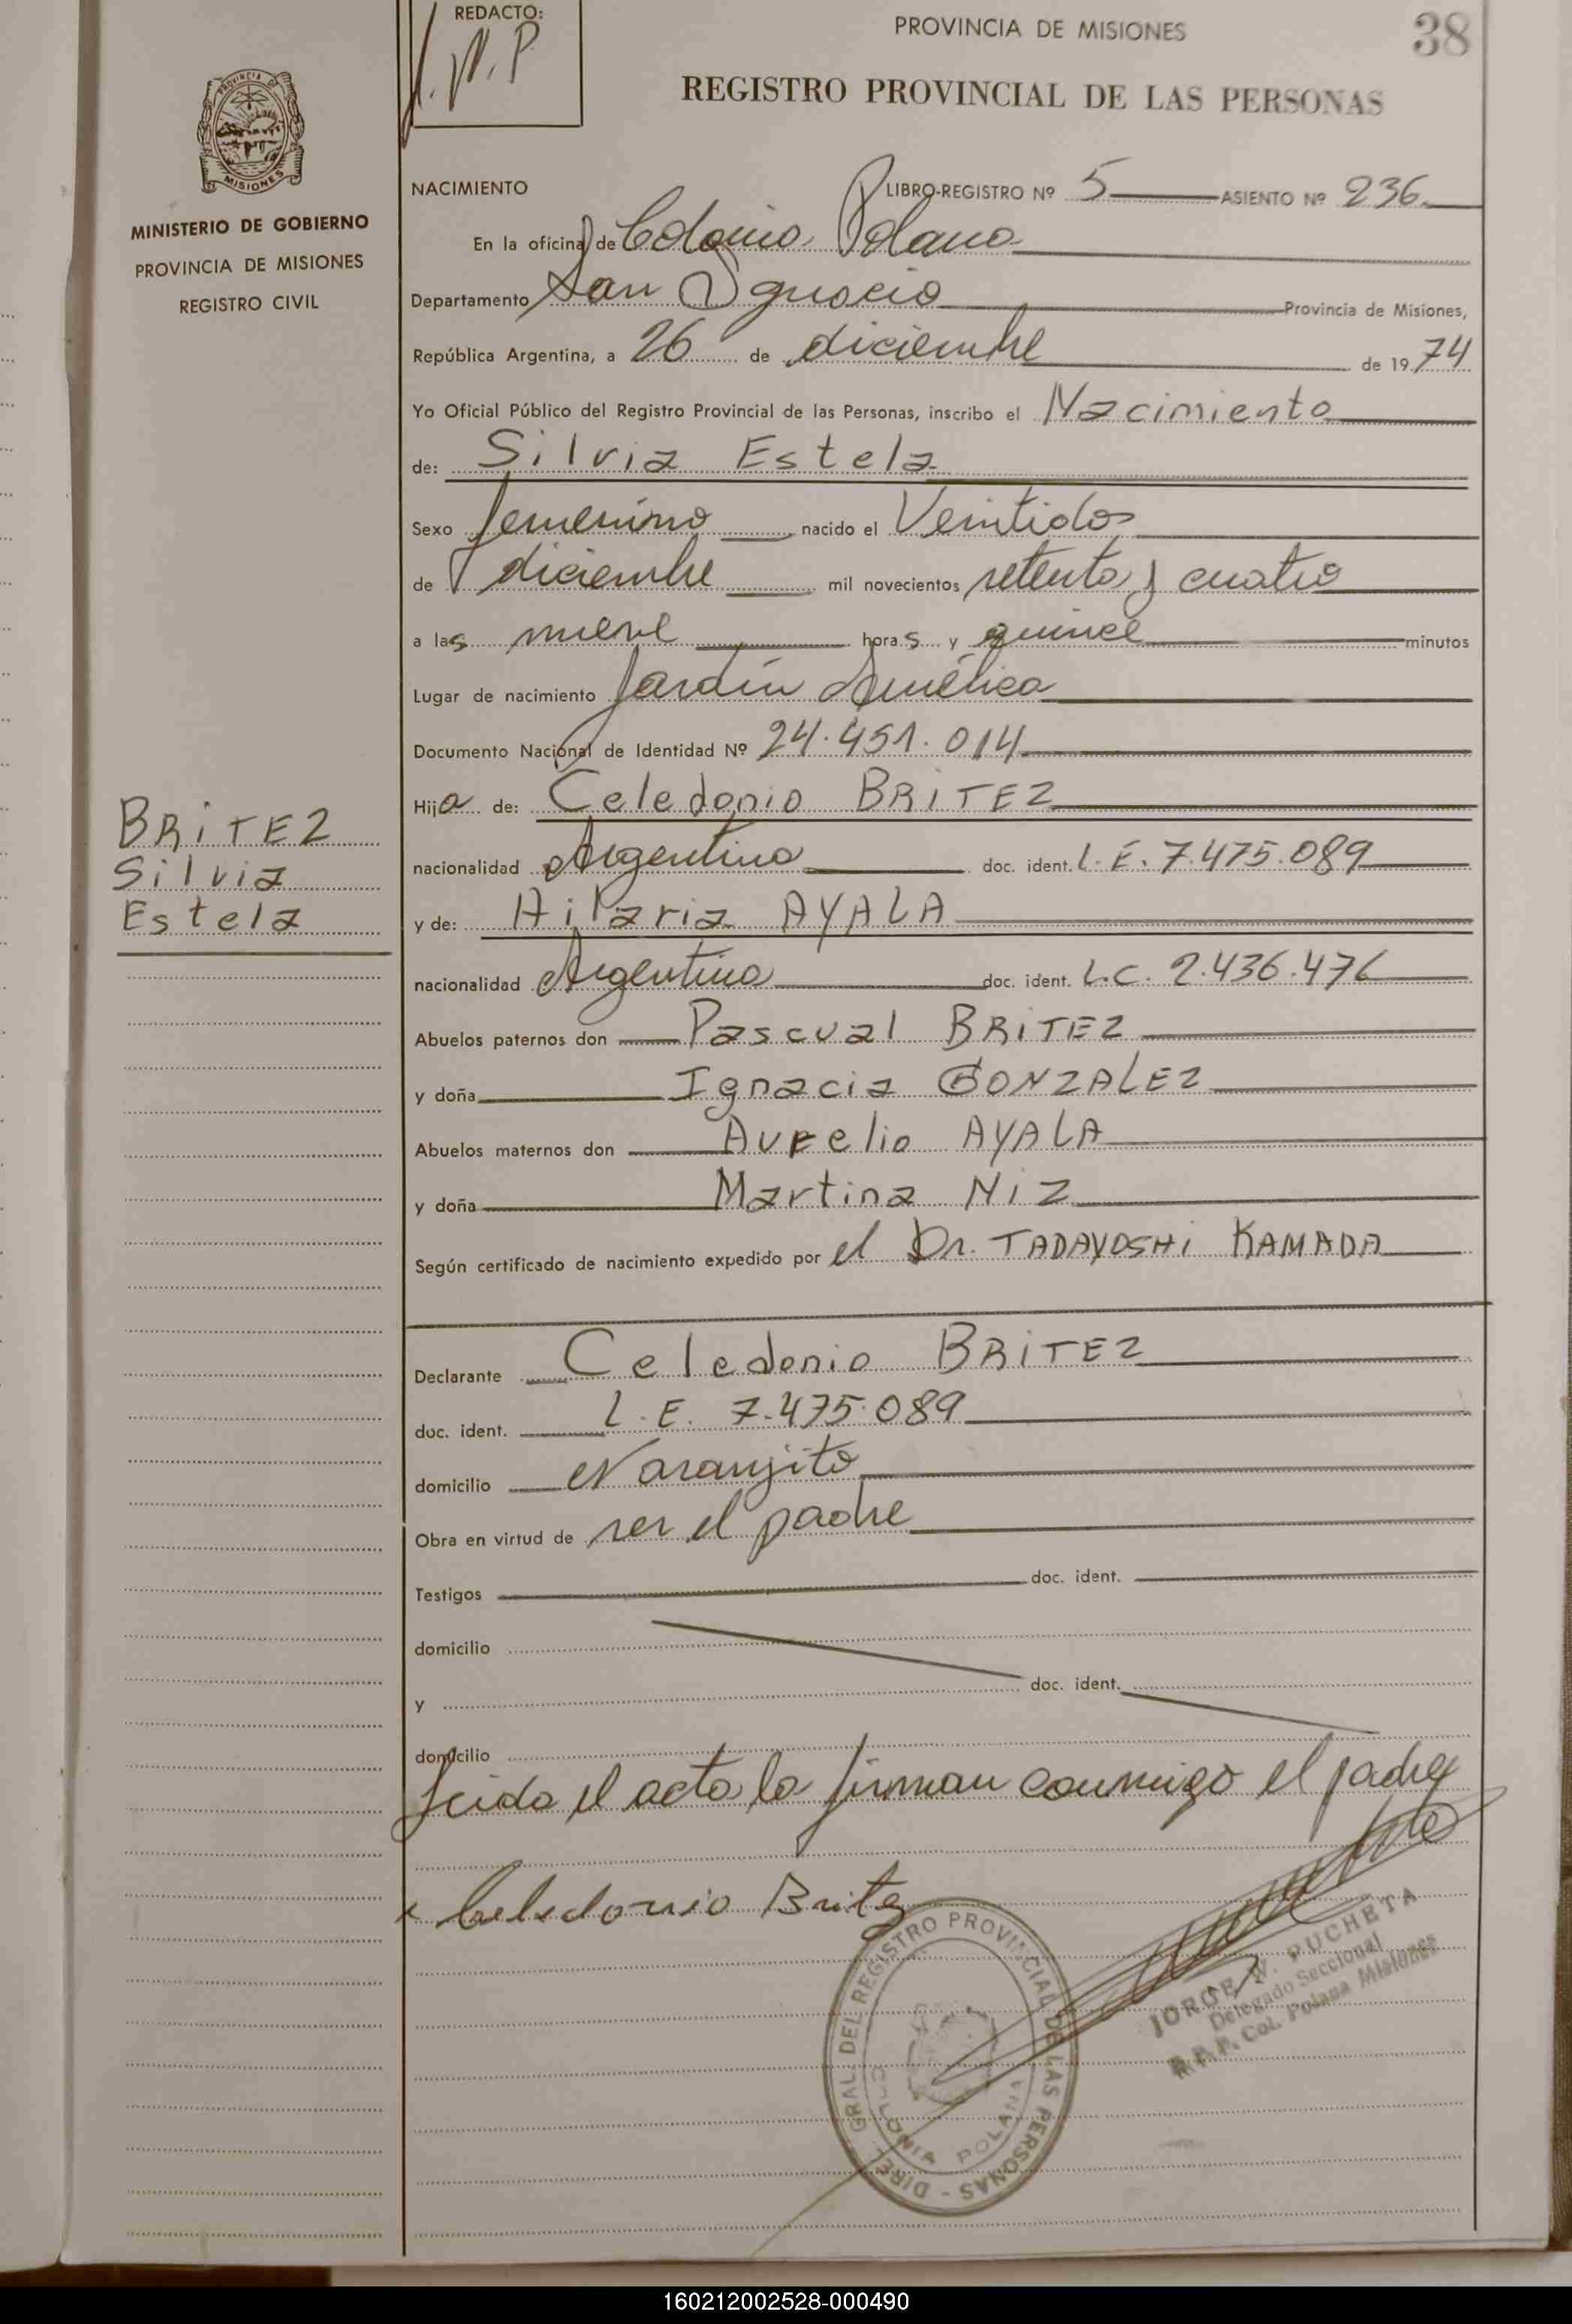 REDACTO:
J.W.P
PROVINCIA DE MISIONES
38
REGISTRO PROVINCIAL DE LAS PERSONAS
PROVINCIA DE
MISIONES
MINISTERIO DE GOBIERNO
PROVINCIA DE MISIONES
REGISTRO CIVIL
NACIMIENTO LIBRO-REGISTRO Nº 5 ASIENTO Nº 236
En la oficina de Colonia Polana
Departamento San Ignacio Provincia de Misiones,
República Argentina, a 26 de diciembre de 1974
Yo Oficial Público del Registro Provincial de las Personas, inscribo el Nacimiento
de: Silvia Estela
Sexo femenino nacido el Veintidos
de diciembre mil novecientos setenta y cuatro
a las nueve horas y quince minutos
Lugar de nacimiento Jardín América
Documento Nacional de Identidad Nº 24.451.014
Hija de: Celedonio BRITEZ
nacionalidad Argentina doc. ident. L.E. 7.475.089
y de: Hilaria AYALA
nacionalidad Argentina doc. ident. L.C. 2.436.476
BRITEZ
Silvia
Estela
Abuelos paternos don Pascual BRITEZ
y doña Ignacia GONZALEZ
Abuelos maternos don Aurelio AYALA
y doña Martina NIZ
Según certificado de nacimiento expedido por el Dr. TADAYOSHI KAMADA
Declarante Celedonio BRITEZ
doc. ident. L.E. 7.475.089
domicilio Naranjito
Obra en virtud de ser el padre
Testigos doc. ident.
domicilio
y doc. ident.
domicilio
Leida el acta la firman conmigo el padre
x Celedonio Britez
DIRE. GRAL. DEL REGISTRO PROVINCIAL DE LAS PERSONAS -
COLONIA POLANA
JORGE W. PUCHETA
Delegado Seccional
R.P.P. Col. Polana Misiones
160212002528-000490